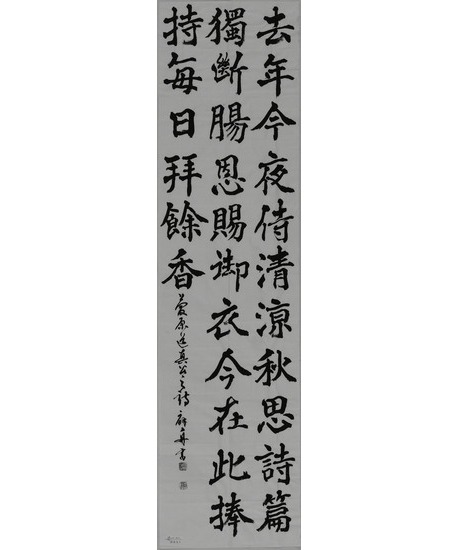 去年今夜侍清涼秋思詩篇
獨斷腸恩賜御衣今在此捧
持每日拜餘香
菅原道真公之詩 舟書